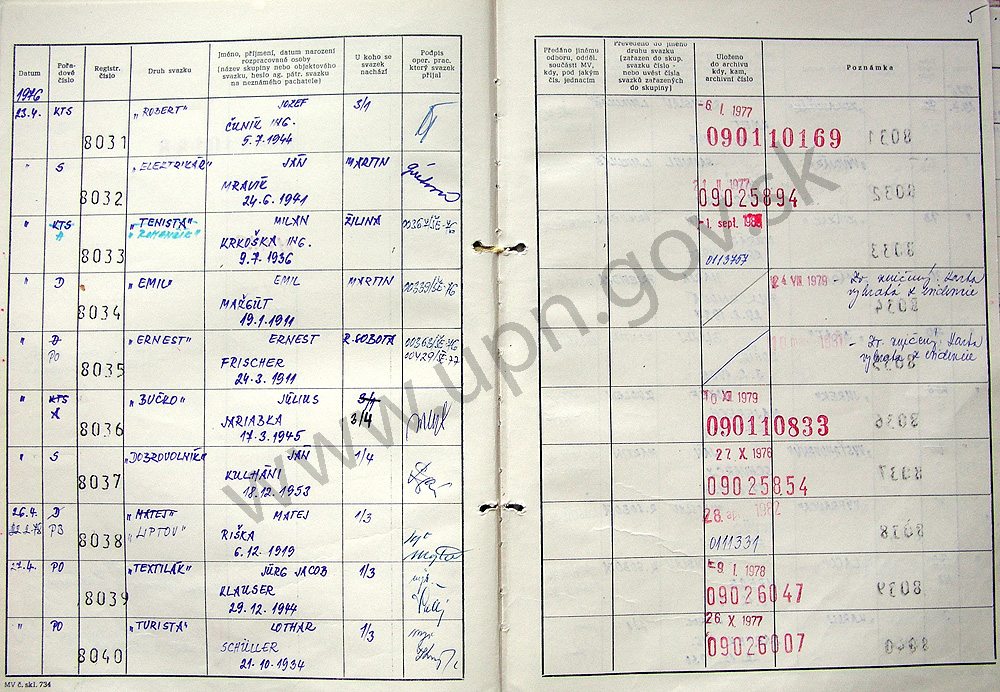 5
Datum
Pořa-
dové
číslo
Registr.
číslo
Druh svazku
Jméno, příjmení, datum narození
rozpracované osoby
(název skupiny nebo objektového
svazku, heslo ag. pátr. svazku
na neznámého pachatele)
U koho se
svazek
nachází
Podpis
oper. prac.
který svazek
přijal
Předáno jinému
odboru, odděl.
součásti MV,
kdy, pod jakým
čís. jednacím
Převedeno do jiného
druhu svazku
(zařazen do skup.
svazku číslo -
nebo uvést čísla
svazků zařazených
do skupiny)
Uloženo
do archivu
kdy, kam,
archivní číslo
Poznámka
1976
23.4. KTS 8031 "ROBERT" JOZEF 3/1
ČUNÍK ING.
5.7.1944
-6. I. 1977
090110169
" S 8032 "ELEKTRIKÁR" JÁN MARTIN
MRAVÍK
24.6.1941
II 1977
09025894
" KTS 8033 "TENISTA" MILAN ŽILINA
A "ROMANČÍK"
KRKOŠKA ING.
9.7.1936
-1. sept. 1988
0113757
" D 8034 "EMIL" EMIL MARTIN
MAŽGÚT
19.1.1911
24 VIII 1979 - Zv. zničený. Karta
vybratá z evidencie
" D 8035 "ERNEST" ERNEST R. SOBOTA
PO
FRISCHER
24.3.1911
Zv. zničený. Karta
vybratá z evidencie
" KTS 8036 "BUČKO" JÚLIUS 3/1
A 3/4
JARIABKA
17.3.1945
10 XII 1979
090110833
" S 8037 "DOBROVOLNÍK" JÁN 1/4
KULHÁNI
18.12.1953
27 X. 1976
09025854
26.4. D 8038 "MATEJ" MATEJ 1/3
PB "LIPTOV"
RIŠKA
6.12.1919
28. apr. 1982
0111331
27.4. PO 8039 "TEXTILÁK" JÜRG JACOB 1/3
KLAUSER
29.12.1944
-9 I. 1978
09026047
" PO 8040 "TURISTA" LOTHAR 1/3
SCHÜLLER
21.10.1934
26. X 1977
09026007
MV č. skl. 734
www.upn.gov.sk